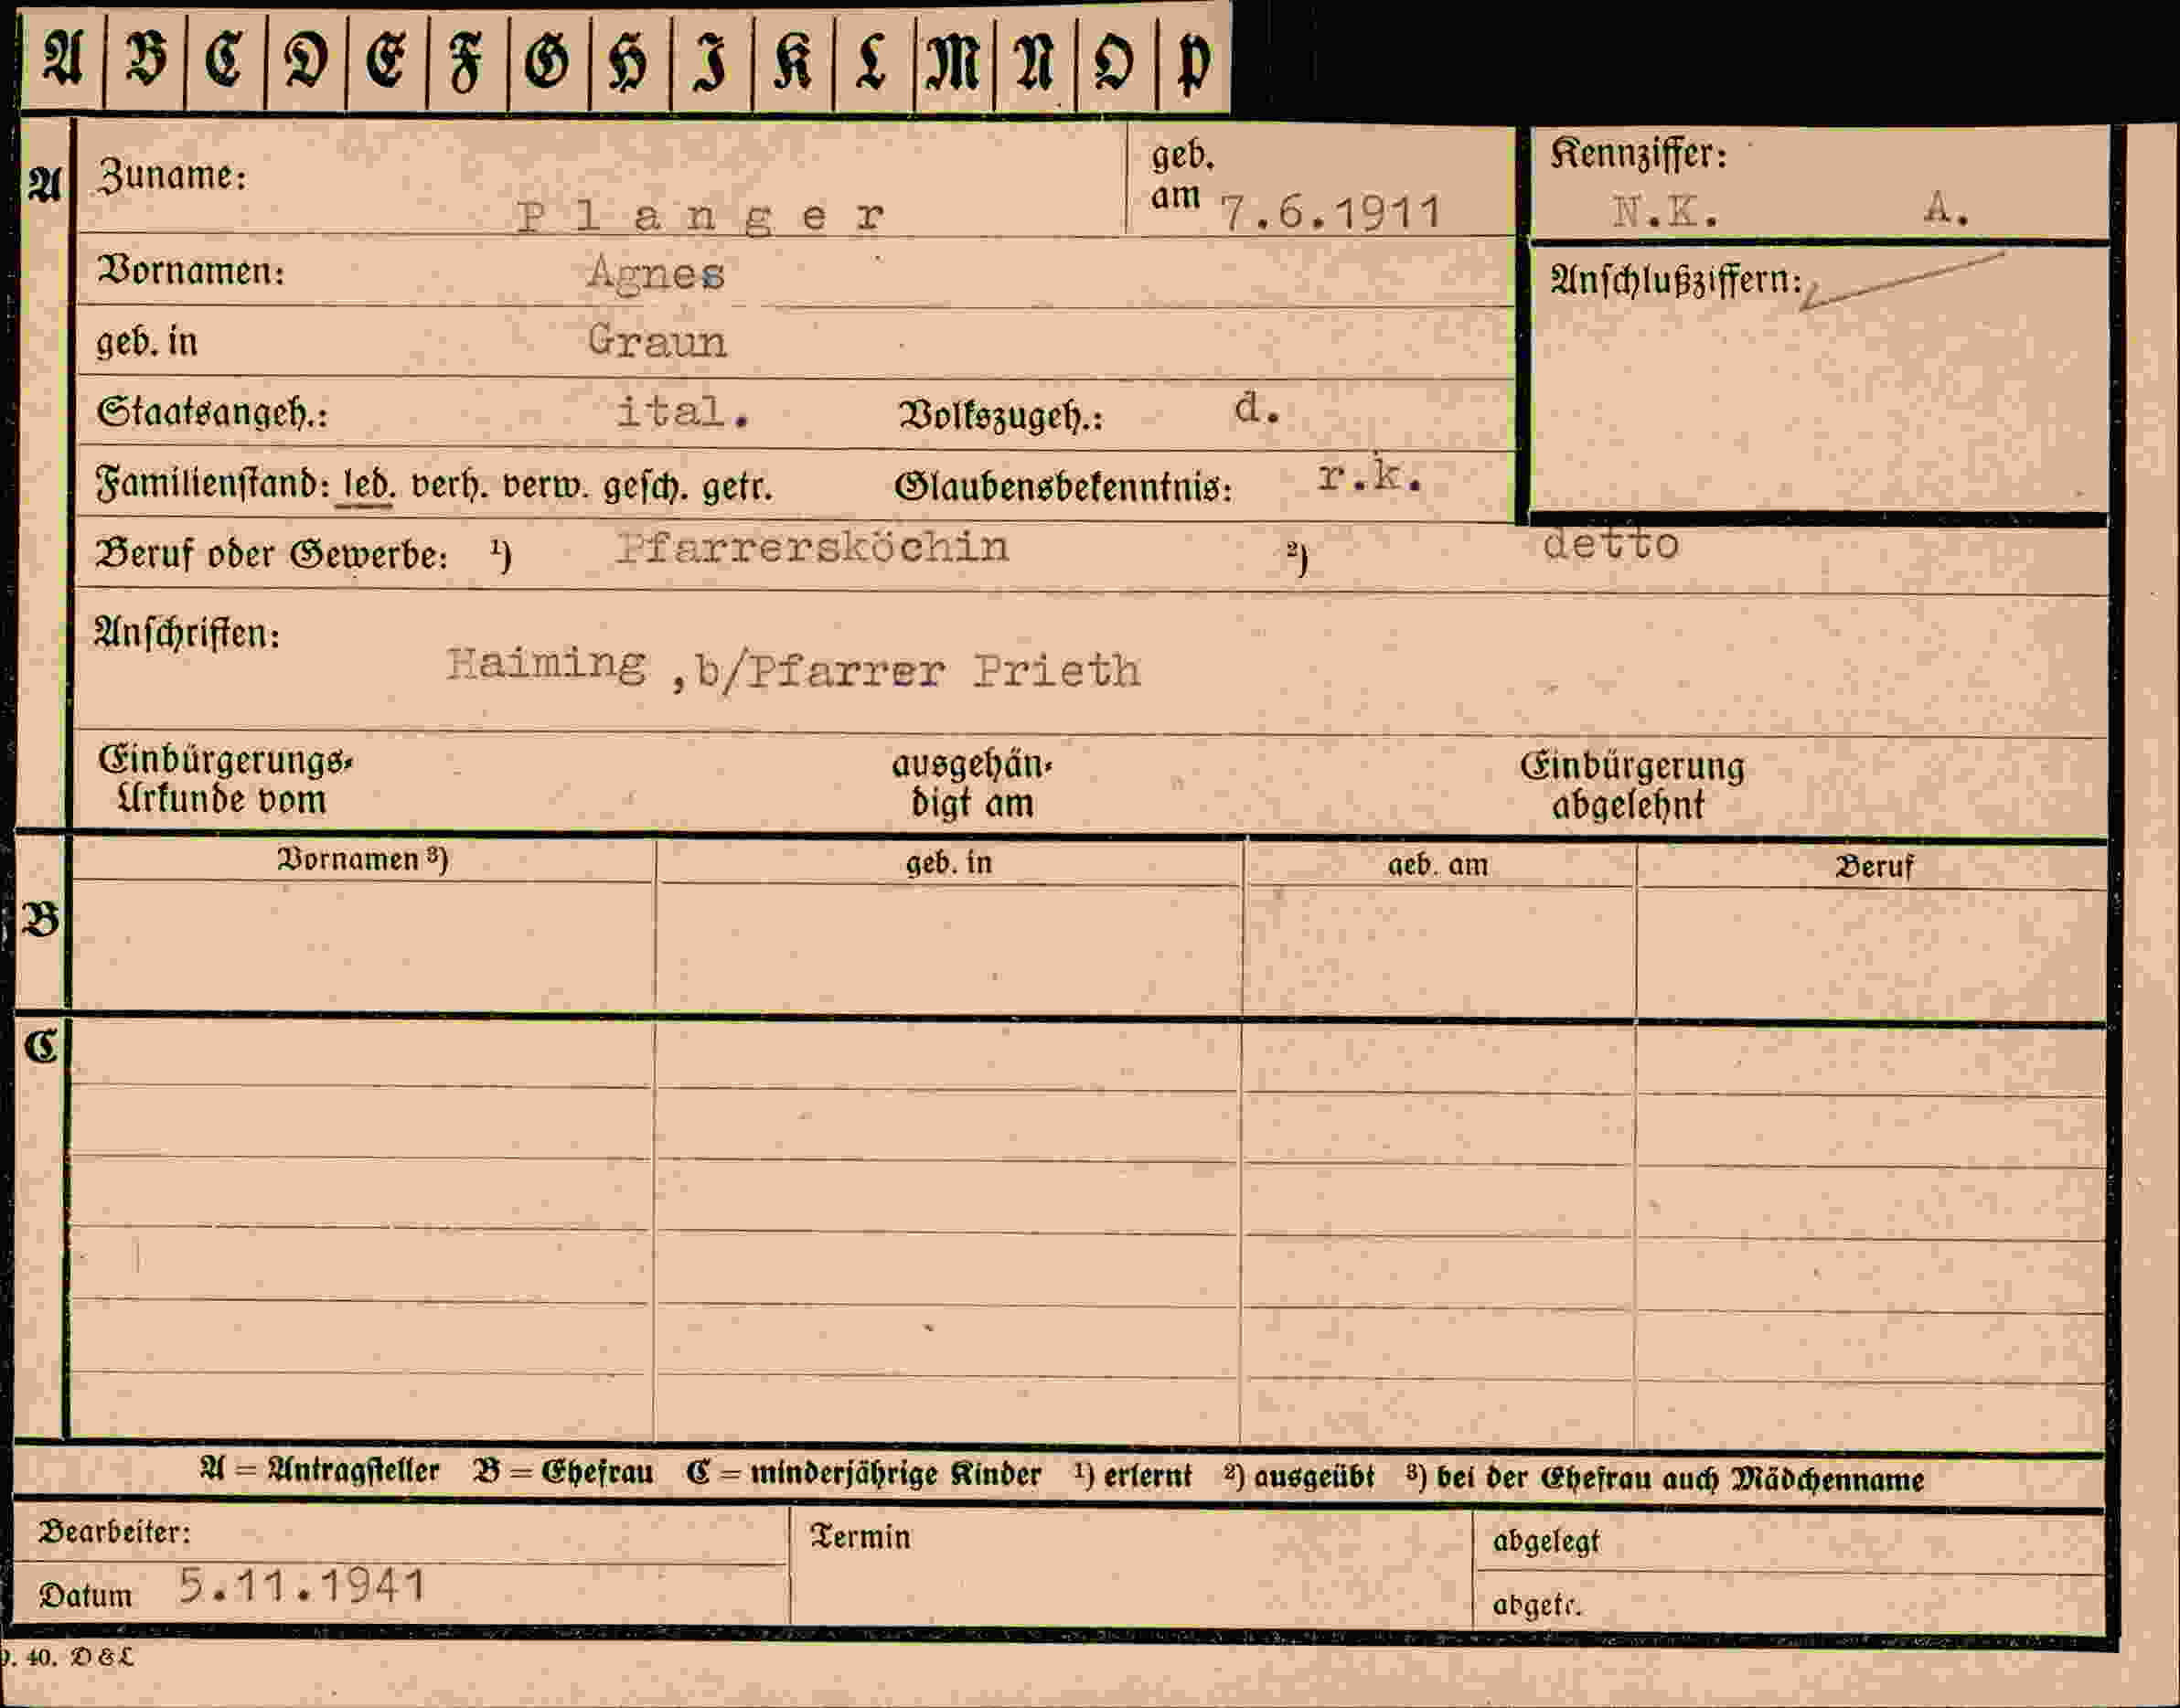 A B C D E F G H I K L M N O P
A Zuname: Planger geb. am 7.6.1911
Kennziffer: N.K. A.
Vornamen: Agnes
Anschlußziffern:
geb. in Graun
Staatsangeh.: ital. Volkszugeh.: d.
Familienstand: led. verh. verw. gesch. getr. Glaubensbekenntnis: r.k.
Beruf oder Gewerbe: ¹) Pfarrersköchin ²) detto
Anschriften: Haiming ,b/Pfarrer Prieth
Einbürgerungs-Urkunde vom ausgehändigt am Einbürgerung abgelehnt
Vornamen ³) geb. in geb. am Beruf
B
C
A = Antragsteller B = Ehefrau C = minderjährige Kinder ¹) erlernt ²) ausgeübt ³) bei der Ehefrau auch Mädchenname
Bearbeiter: Termin abgelegt
Datum 5.11.1941 abgetr.
40. D & L